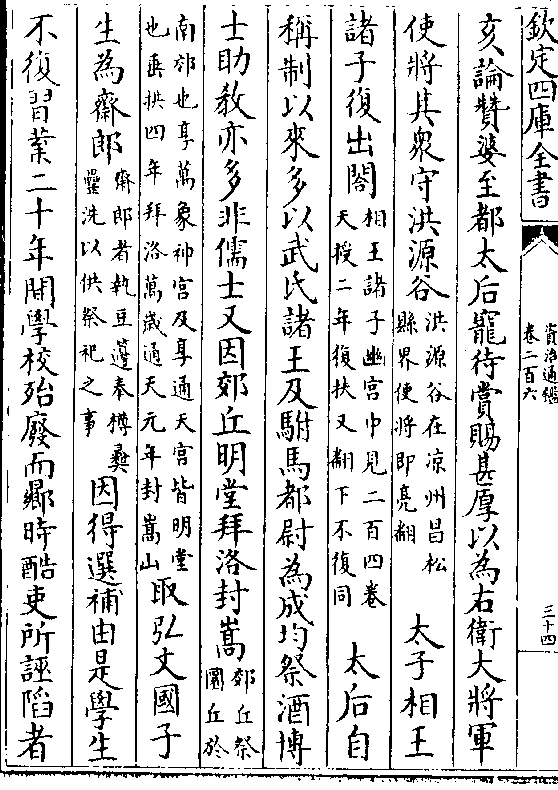 欽定四庫全書
資治通鑑
卷二百六
三十四
亥論贊婆至都太后寵待賞賜甚厚以為右衛大將軍
使將其衆守洪源谷
洪源谷在凉州昌松
縣界使將即亮翻
太子相王
諸子復出閤
相王諸子幽宫中見二百四卷
天授二年復扶又翻下不復同
太后自
稱制以來多以武氏諸王及駙馬都尉為成均祭酒博
士助教亦多非儒士又因郊丘明堂拜洛封嵩
郊丘祭
圜丘於
南郊也享萬象神宫及享通天宫皆明堂
也垂拱四年拜洛萬歲通天元年封嵩山
取弘文國子
生為齋郎
齋郎者執豆籩奉樽彝
罍洗以供祭祀之事
因得選補由是學生
不復習業二十年間學校殆廢而鄉時酷吏所誣陷者